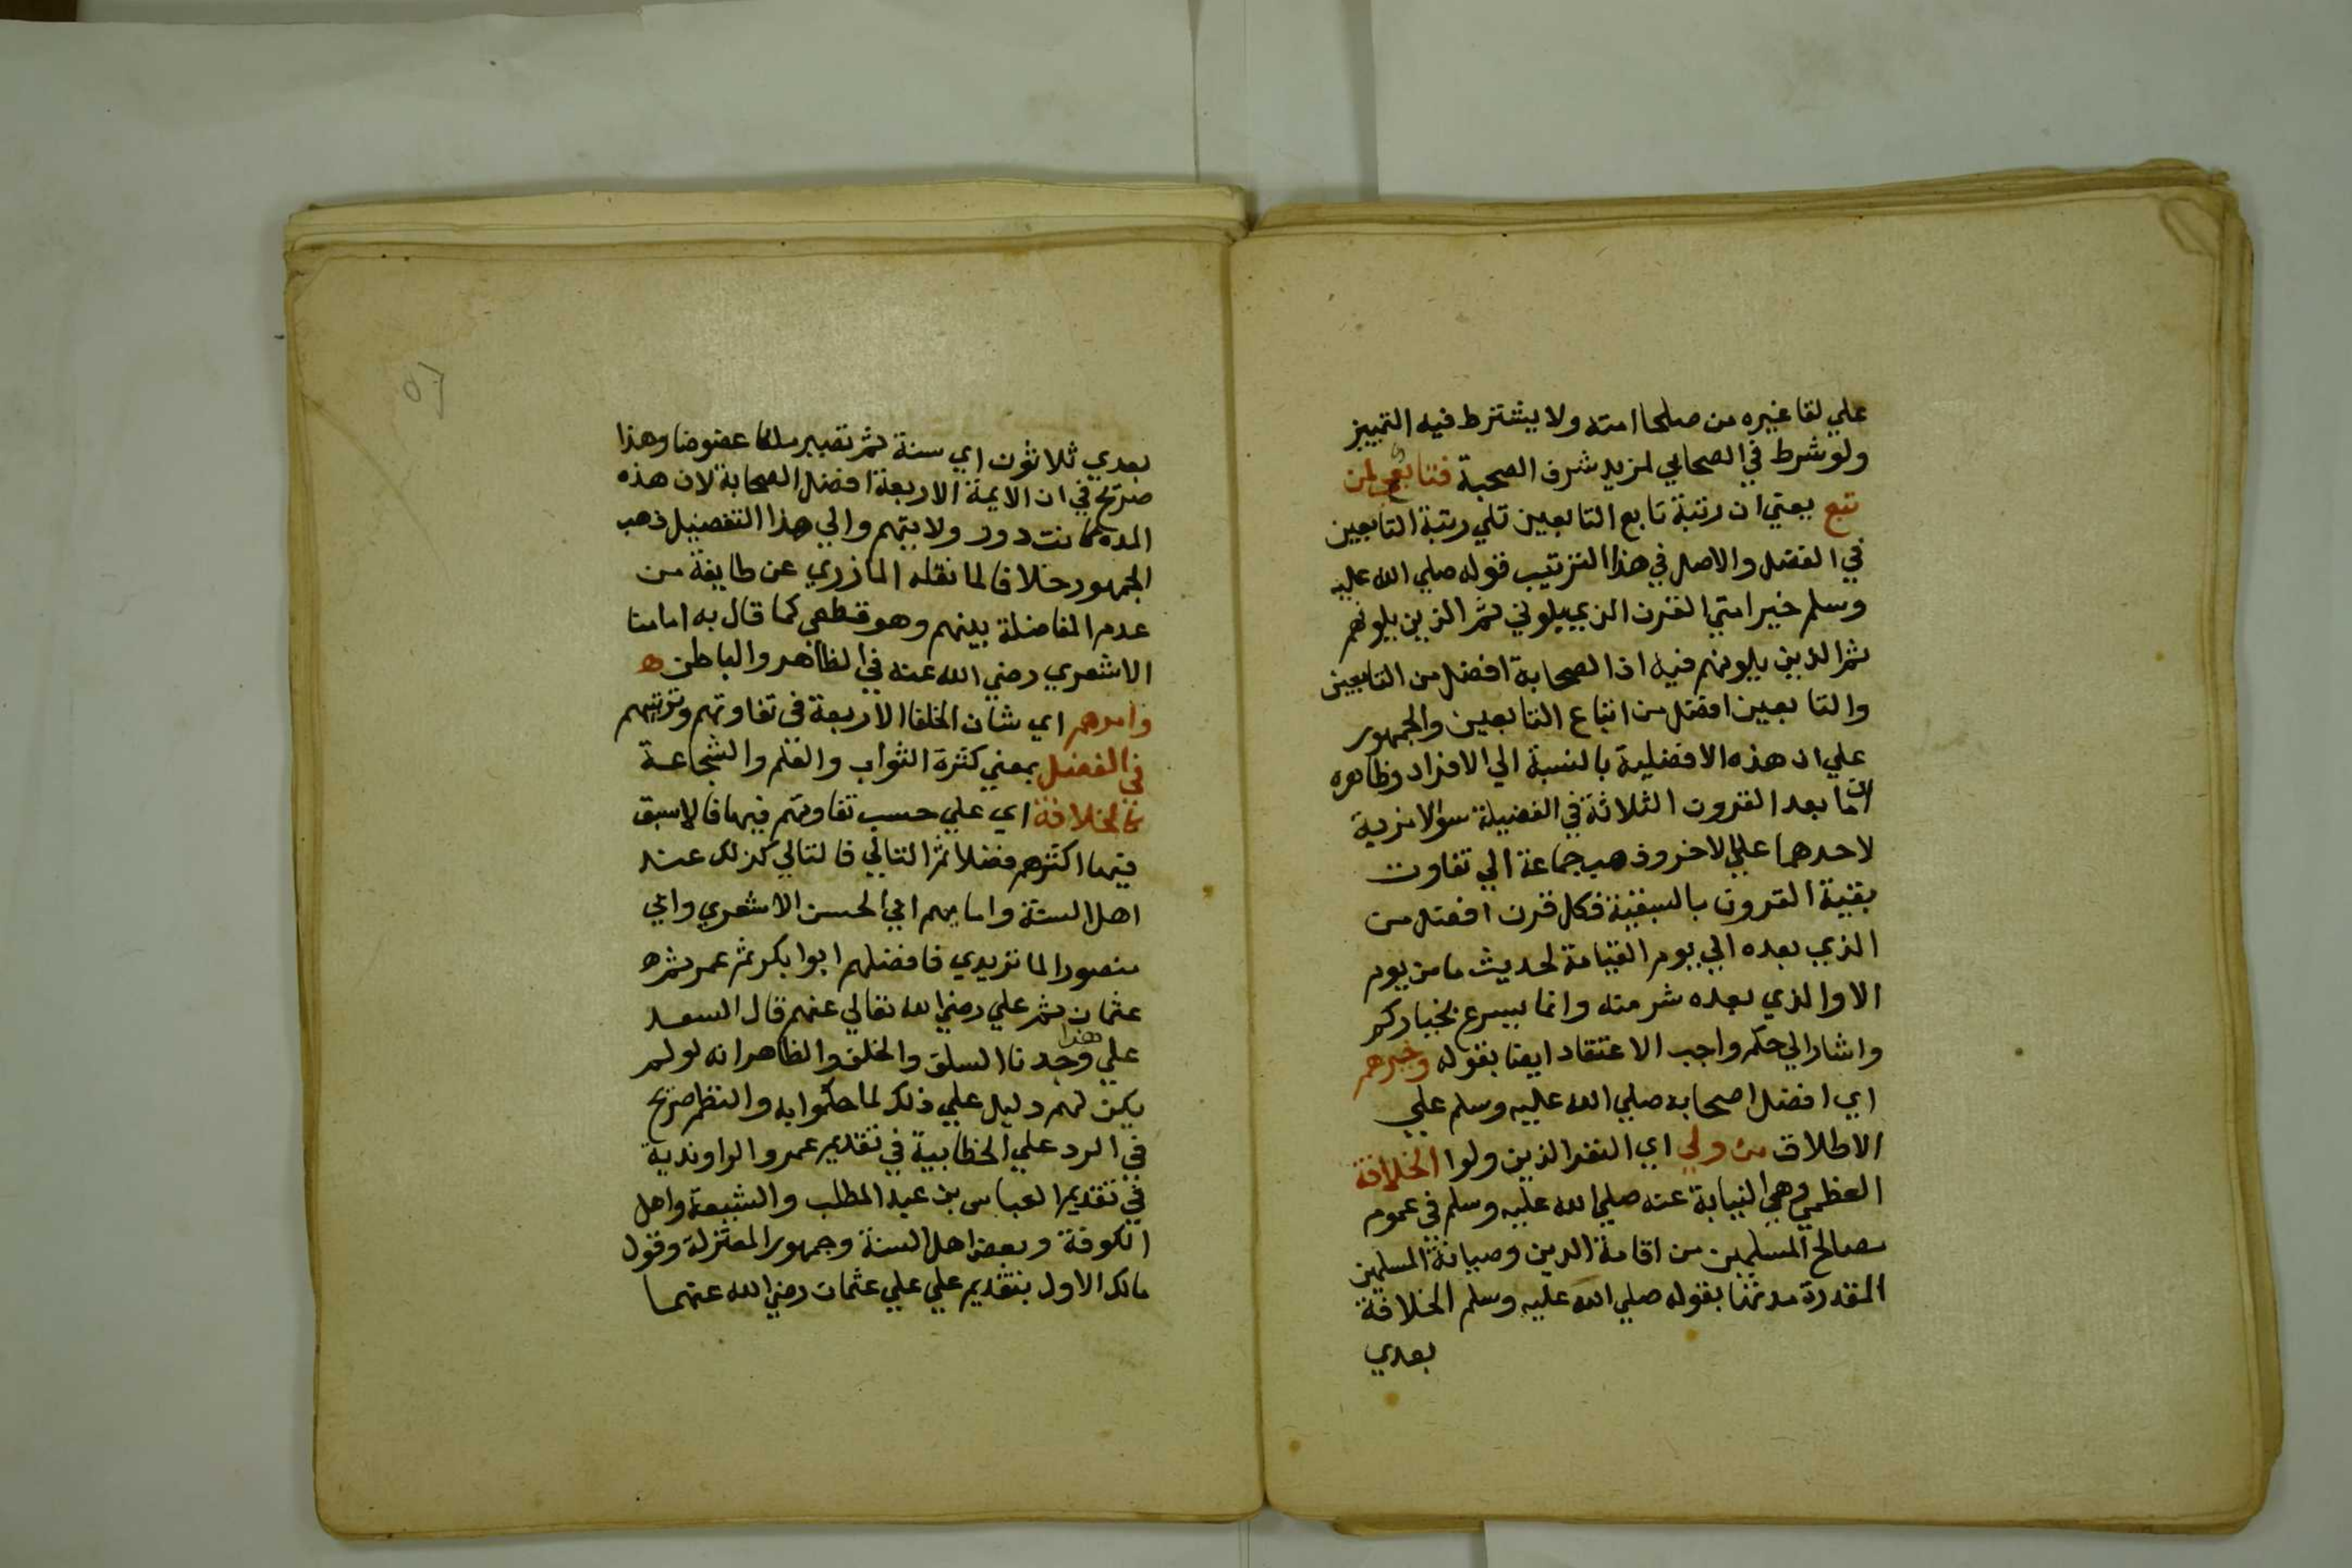 علي لقا غيره من صلحا امته ولا يشترط فيه التمييز
ولو شرط في الصحابي لمزيد شرف الصحبة فتابعي لمن
تبع يعني ان رتبة تابع التابعين تلي رتبة التابعين
في الفضل والاصل في هذا الترتيب قوله صلي الله عليه
وسلم خير امتي القرن الذي يلوني ثم الذين يلونهم
ثم الذين يلونهم فيه اذا الصحابة افضل من التابعين
والتابعين افضل من اتباع التابعين والجمهور
علي ان هذه الافضلية بالنسبة الي الافراد وظاهره
ان ما بعد القرون الثلاثة في الفضيلة سوا لا مزية
لاحدهما علي الاخر وذهب جماعة الي تفاوت
بقية القرون بالسبقية فكل قرن افضل من
الذي بعده الي يوم القيامة لحديث ما من يوم
الا والذي بعده شر منه وانما يسرع بخياركم
واشار الي حكم واجب الاعتقاد ايضا بقوله وخيرهم
اي افضل اصحابه صلي الله عليه وسلم علي
الاطلاق من ولي اي النفر الذين ولوا الخلافة
العظمي وهي النيابة عنه صلي الله عليه وسلم في عموم
مصالح المسلمين من اقامة الدين وصيانة المسلمين
المقدرة مدتها بقوله صلي الله عليه وسلم الخلافة
بعدي
بعدي ثلاثون اي سنة ثم تصير ملكا عضوضا وهذا
صريح في ان الايمة الاربعة افضل الصحابة لان هذه
المده كانت دور ولايتهم والي هذا التفضيل ذهب
الجمهور خلافا لما نقله المازري عن طايفة من
عدم المفاضلة بينهم وهو قطعي كما قال به امامنا
الاشعري رضي الله عنه في الظاهر والباطن ه
وامرهم اي شان الخلفا الاربعة في تفاوتهم وترتيبهم
في الفضل بمعني كثرة الثواب والعلم والشجاعة
كالخلافة اي علي حسب تفاوتهم فيها فالاسبق
فيها اكثرهم فضلا ثم التالي فالتالي كذلك عند
اهل السنة وامامهم ابي الحسن الاشعري وابي
منصور الماتريدي فافضلهم ابوا بكر ثم عمر ثم ه
عثمان ثم علي رضي الله تعالي عنهم قال السعد
علي هذا وجدنا السلف والخلف والظاهر انه لو لم
يكن لهم دليل علي ذلك لما حكموا به والنظم صريح
في الرد علي الخطابية في تقديم عمر والراوندية
في تقديم العباس بن عبد المطلب والشيعة واهل
الكوفة وبعض اهل السنة وجمهور المعتزلة وقول
مالك الاول بتقديم علي علي عثمان رضي الله عنهما